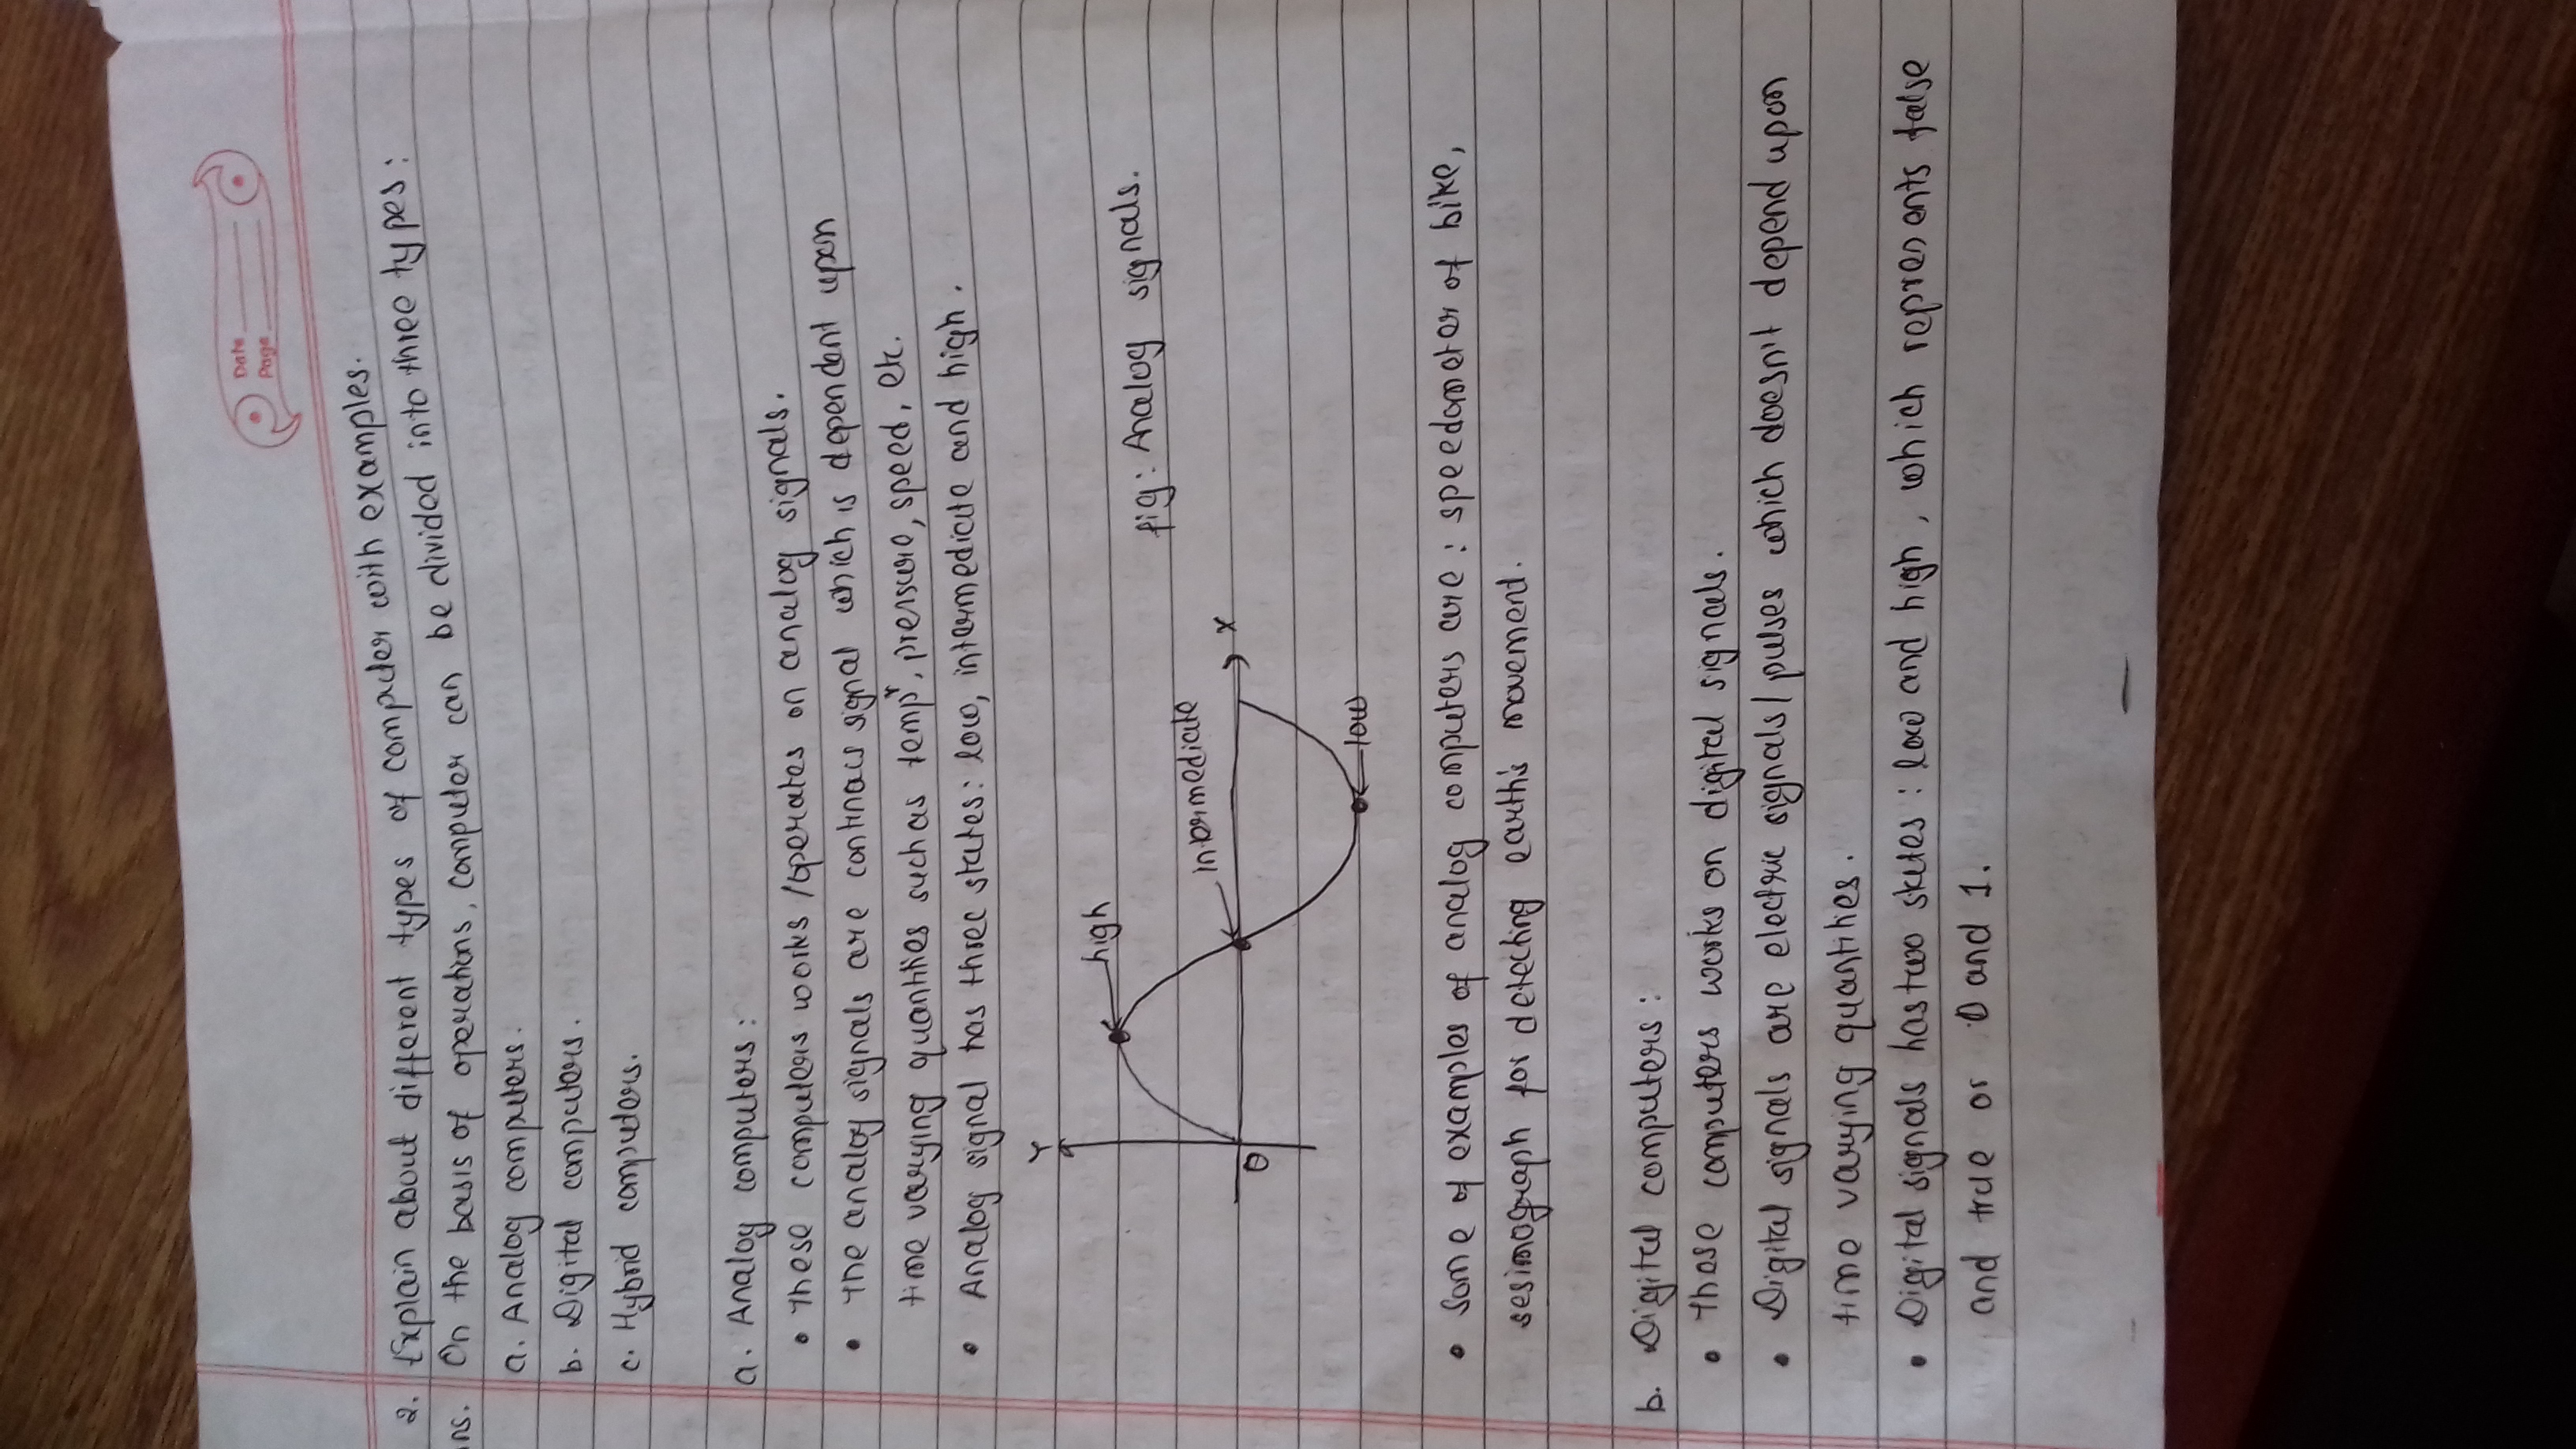 Date
Page
2. Explain about different types of computer with examples.
ns. On the basis of operations, computer can be divided into three types:
a. Analog computers.
b. Digital computers.
c. Hybrid computers.
a. Analog computers:
• These computers works /operates on analog signals.
• The analog signals are continacs signal which is dependent upon
time varying quantities such as tempr, pressure, speed, etc.
• Analog signal has three states: low, intermediate and high.
Y
high
fig: Analog signals.
intermediate
X
O
low
• Some of examples of analog computers are: speedometer of bike,
sesimograph for detecting earth's movement.
b. Digital computers:
• These computers works on digital signals.
• Digital signals are electric signals/ pulses which doesn't depend upon
time varying quantities.
• Digital signals has two states: low and high, which represents false
and true or 0 and 1.